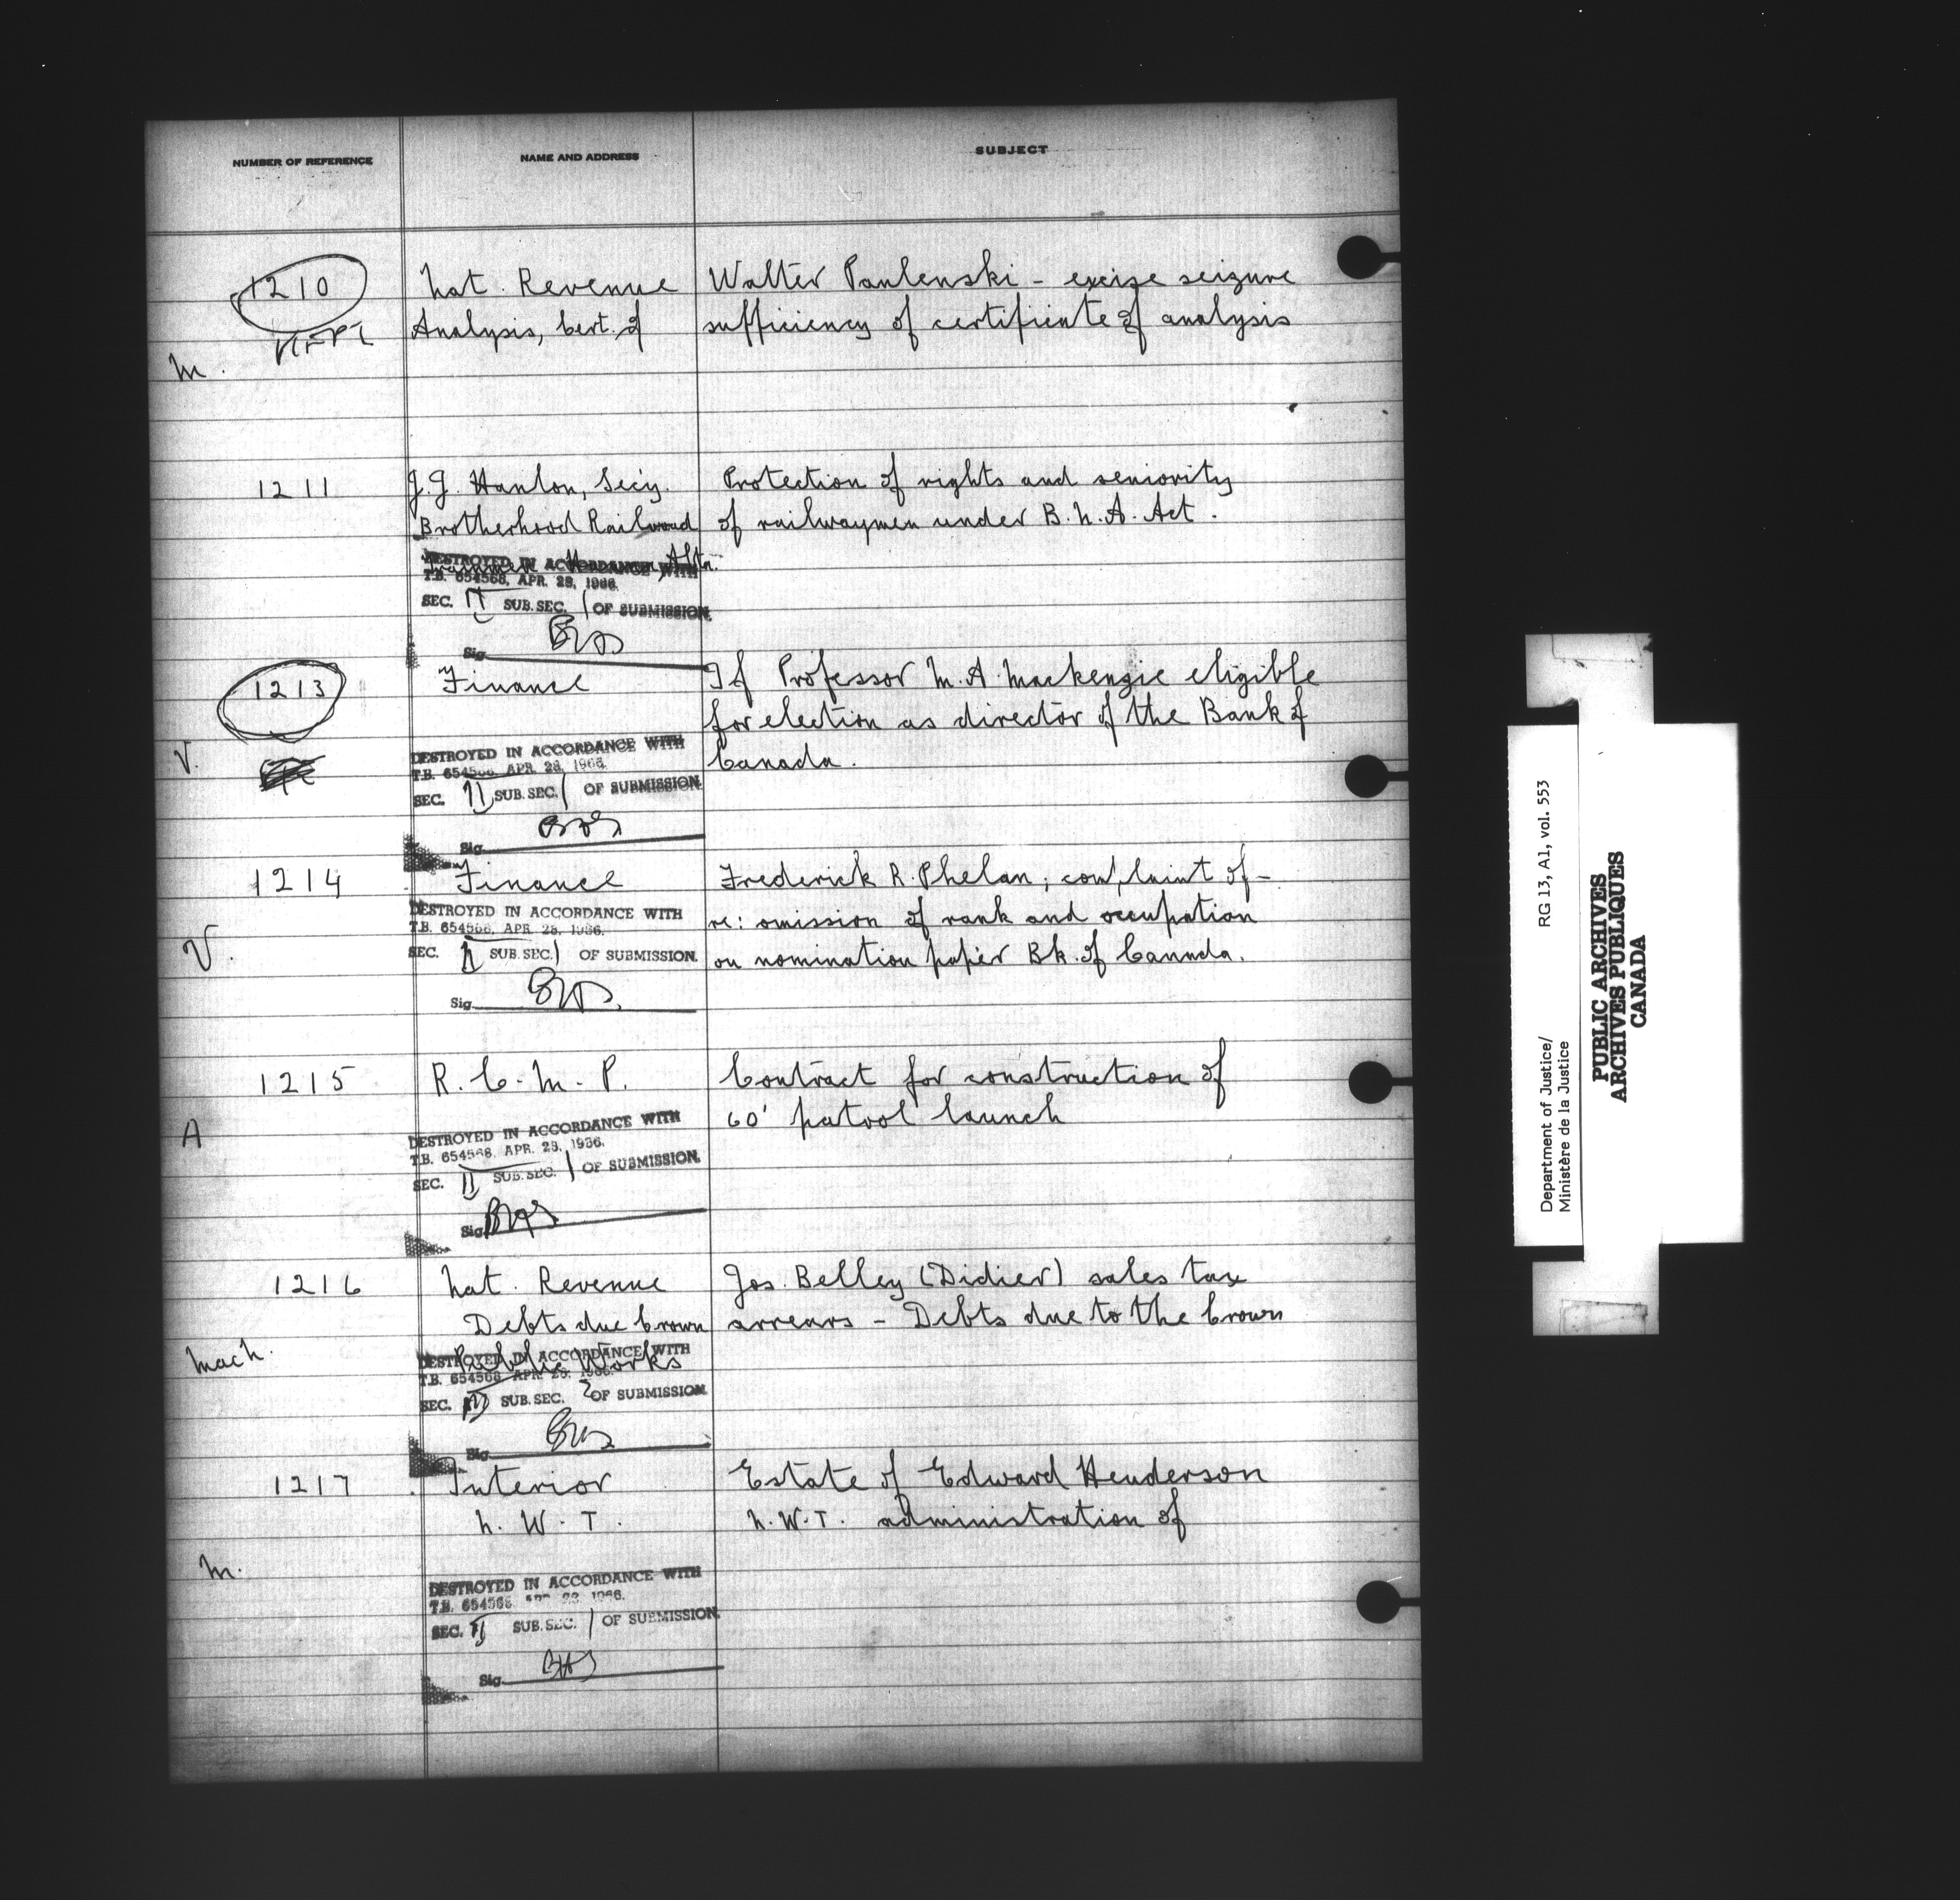 NUMBER OF REFERENCE
NAME AND ADDRESS
SUBJECT
1210
Nat. Revenue
Walter Paulenski - excise seizure
Analysis, Cert. of
sufficiency of certificate of analysis
M.
1211
J.J. Hanlon, Sec'y.
Protection of rights and seniority
Brotherhood Railroad
of railwaymen under B.N.A. Act.
Trainmen Alta.
DESTROYED IN ACCORDANCE WITH
T.B. 654568, APR. 28, 1966.
SEC. II SUB. SEC. 1 OF SUBMISSION.
Sig.
1213
Finance
If Professor M.A. Mackenzie eligible
for election as director of the Bank of
V.
Canada.
DESTROYED IN ACCORDANCE WITH
T.B. 654568, APR. 28, 1966.
SEC. II SUB. SEC. 1 OF SUBMISSION.
Sig.
1214
Finance
Frederick R. Phelan; complaint of -
re: omission of rank and occupation
V.
on nomination paper Bk. of Canada.
DESTROYED IN ACCORDANCE WITH
T.B. 654568, APR. 28, 1966.
SEC. II SUB. SEC. 1 OF SUBMISSION.
Sig.
1215
R.C.M.P.
Contract for construction of
60' patrol launch
A
DESTROYED IN ACCORDANCE WITH
T.B. 654568, APR. 28, 1966.
SEC. II SUB. SEC. 1 OF SUBMISSION.
Sig.
1216
Nat. Revenue
Jos. Belley (Didier) sales tax
Debts due Crown
arrears - Debts due to the Crown
Mach.
Public Works
DESTROYED IN ACCORDANCE WITH
T.B. 654568, APR. 28, 1966.
SEC. SUB. SEC. 2 OF SUBMISSION.
Sig.
1217
Interior
Estate of Edward Henderson
N.W.T.
N.W.T. administration of
M.
DESTROYED IN ACCORDANCE WITH
T.B. 654568, APR. 28, 1966.
SEC. II SUB. SEC. 1 OF SUBMISSION.
Sig.
Department of Justice/ RG 13, A1, vol. 553
Ministère de la Justice
PUBLIC ARCHIVES
ARCHIVES PUBLIQUES
CANADA